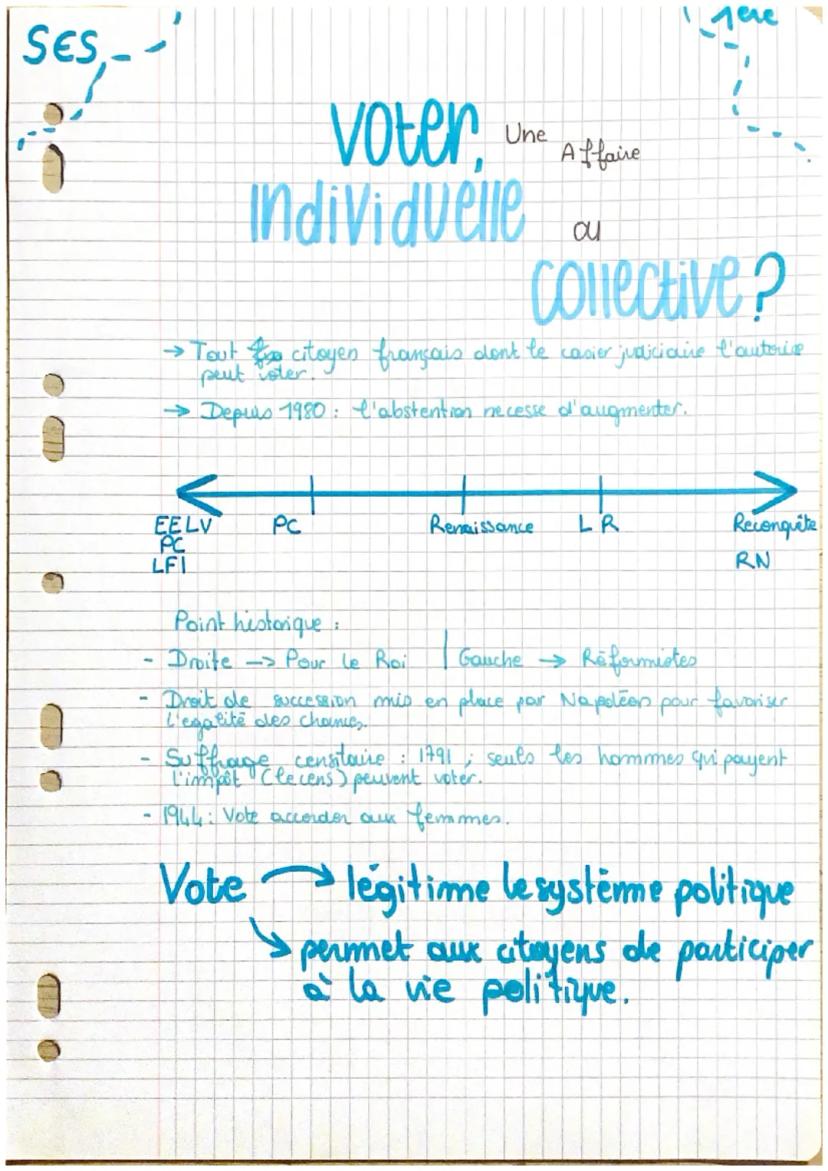 SES
1ere
Voter, Une Affaire
Individuelle ou
Collective ?
→ Tout citoyen français dont le casier judiciaire l'autorise
peut voter.
→ Depuis 1980 : l'abstention necesse d'augmenter.
EELV PC Renaissance LR Reconquête
PC
LFI RN
Point historique :
- Droite --> Pour le Roi | Gauche → Réformistes
- Droit de succession mis en place par Napoléon pour favoriser
l'egalité des chances.
- Suffrage censitaire : 1791 ; seuls les hommes qui payent
l'impôt (le cens) peuvent voter.
- 1944 : Vote accorder aux femmes.
Vote → légitime le système politique
↘ permet aux citoyens de participer
à la vie politique.